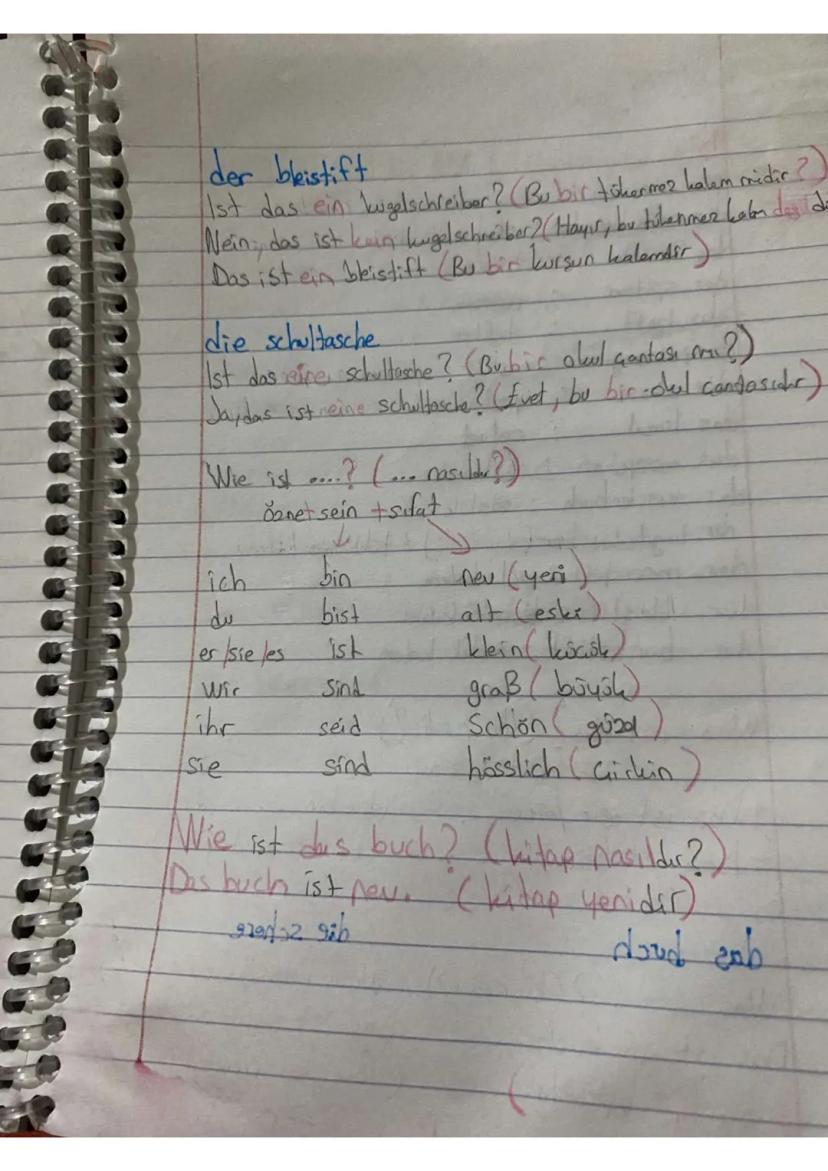 der bleistift
Ist das ein kugelschreiber? (Bu bir tükenmez kalem midir?)
Nein, das ist kein kugelschreiber? (Hayır, bu tükenmez kalem
Das ist ein bleistift (Bu bir kurşun kalemdir)
die schultasche
Ist das eine schultasche? (Bu bir okul çantası mı?)
Ja, das ist eine schultasche? (Evet, bu bir okul çantasıdır)
Wie ist ....? (... nasıldır?)
özne+sein +sıfat
ich bin neu (yeni)
du bist alt (eski)
er/sie/es ist klein (küçük)
wir sind graß (büyük)
ihr seid Schön (güzel)
sie sind hässlich (Çirkin)
Wie ist das buch? (kitap nasıldır?)
Das buch ist neu. (kitap yenidir)
die schere das buch